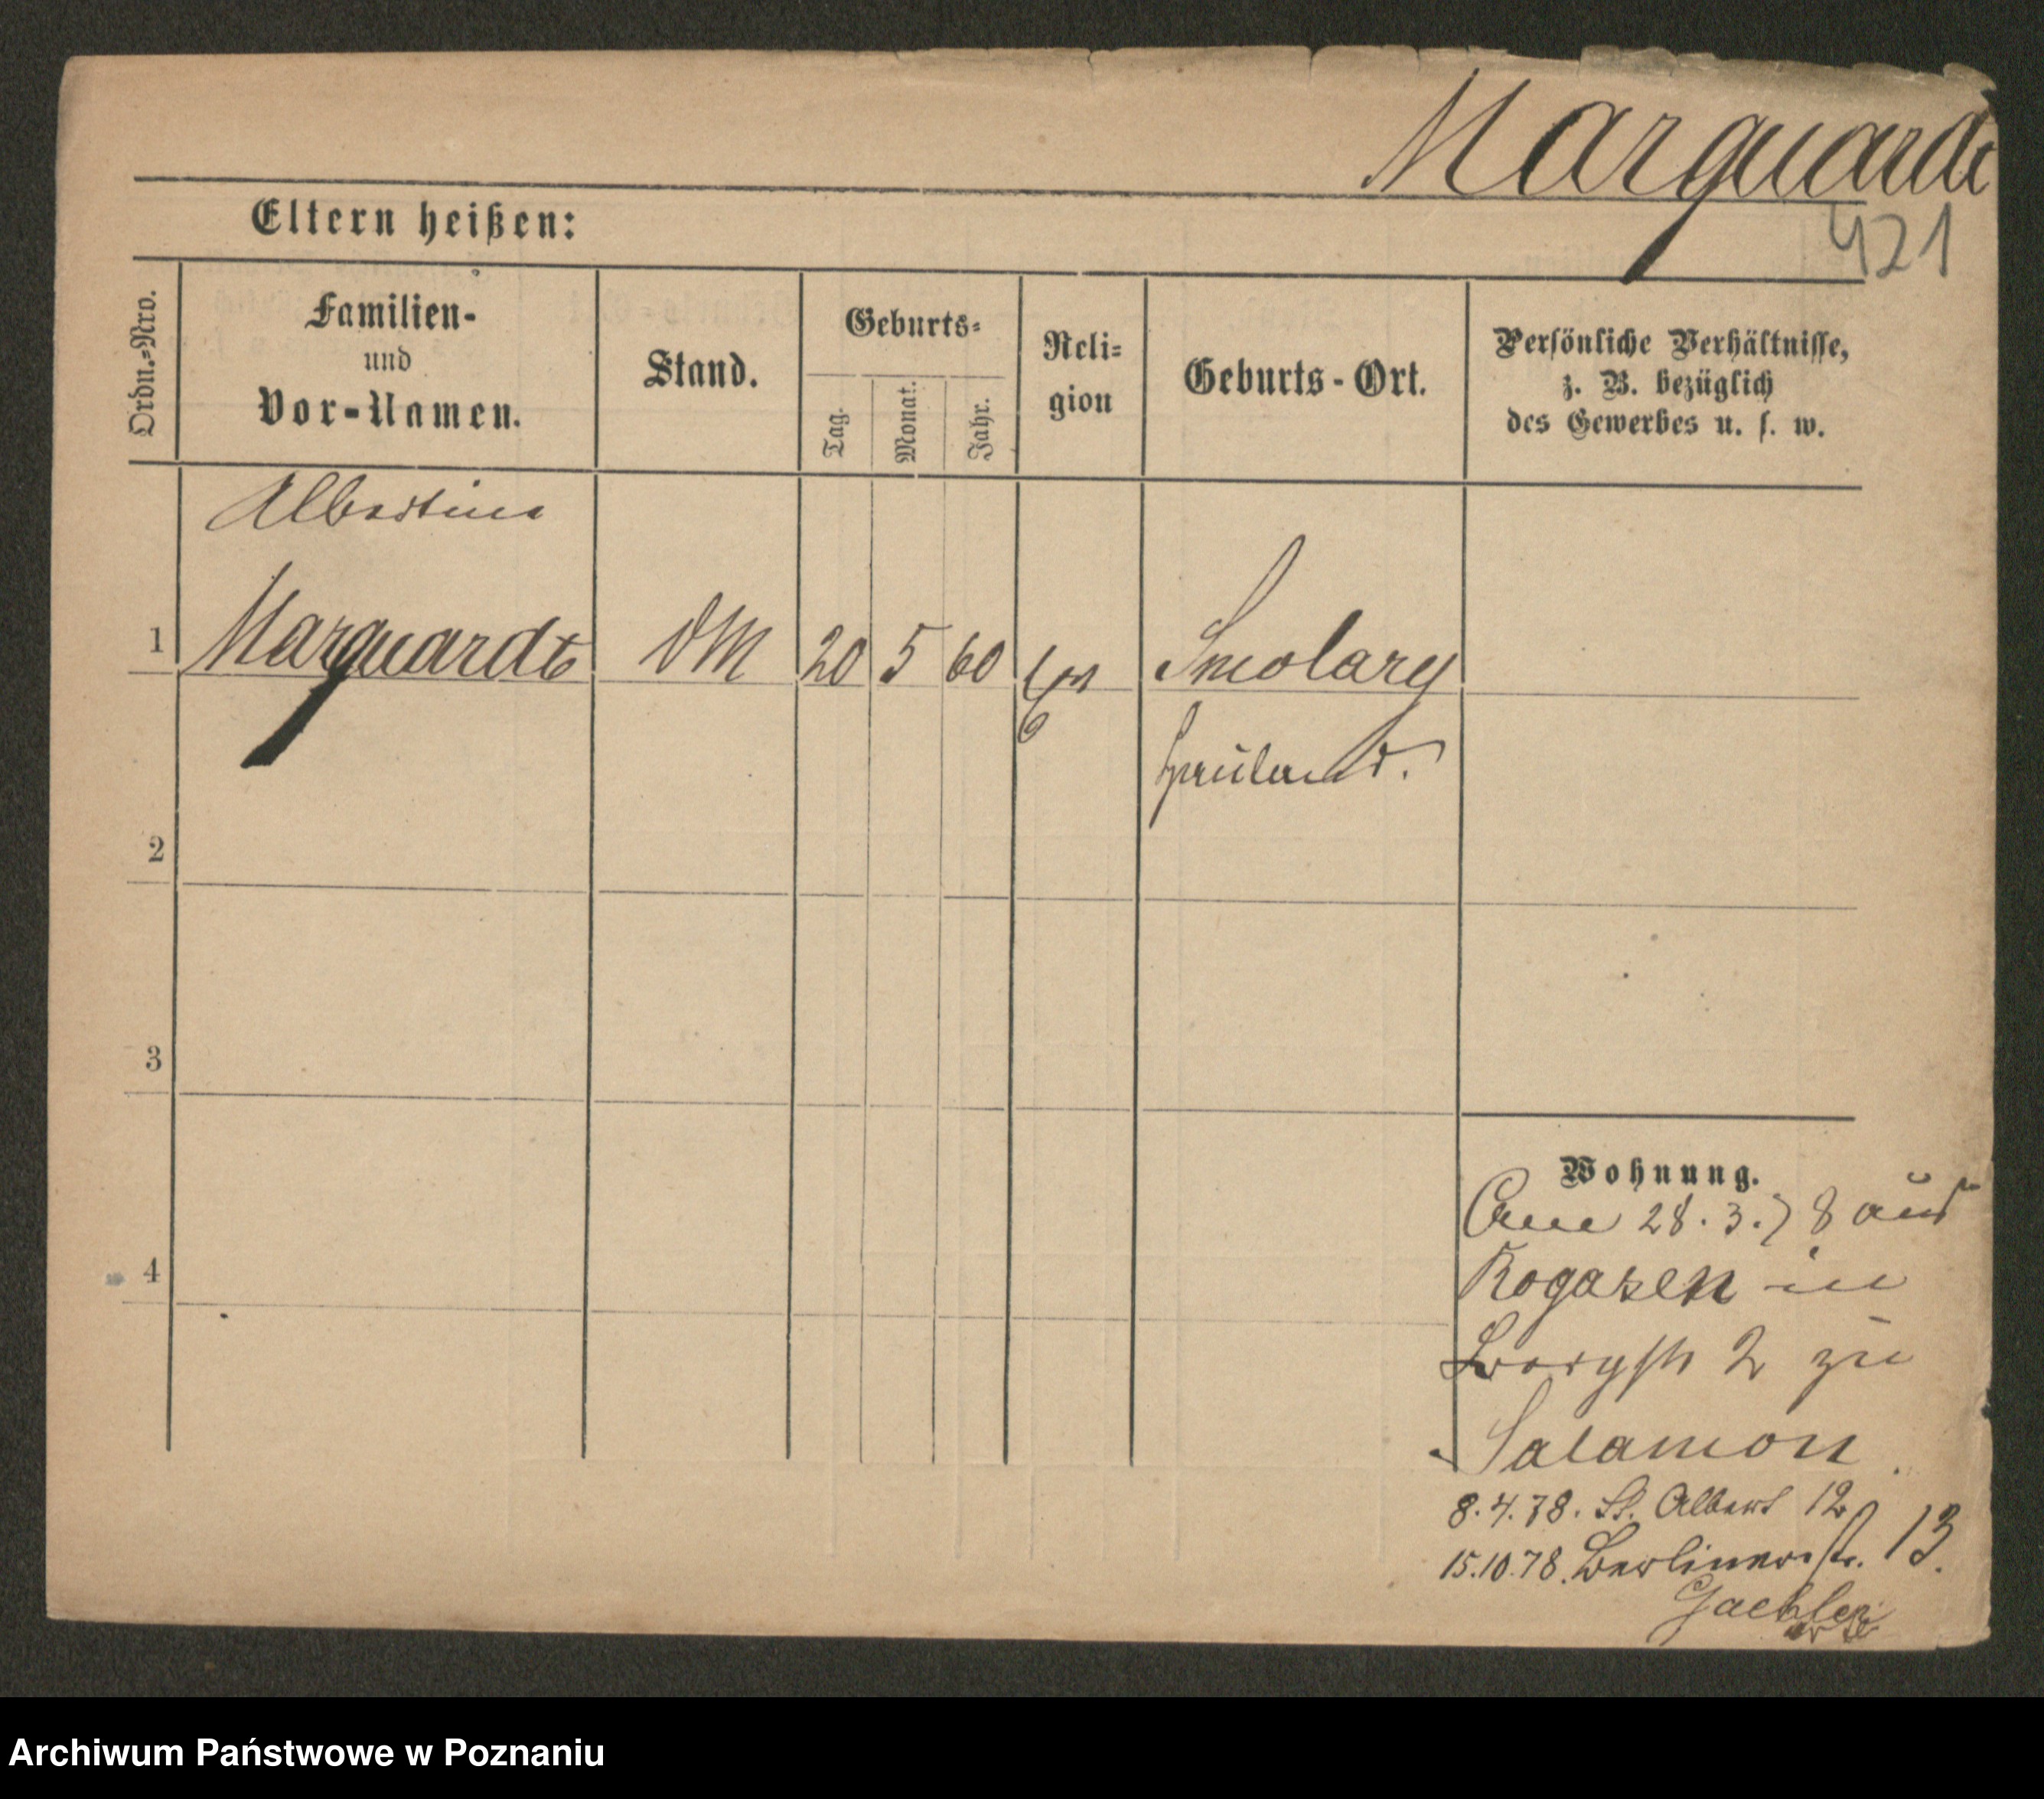 Marquardt
421
Eltern heißen:
Ordn.-Nro.
Familien-
und
Vor-Namen.
Stand.
Geburts-
Tag.
Monat.
Jahr.
Reli-
gion
Geburts-Ort.
Persönliche Verhältnisse,
z. B. bezüglich
des Gewerbes u. s. w.
Albertine
1 Marquardt DM 20 5 60 Smolary
Hauland.
2
3
4
Wohnung.
28.3.78 aus
Rogasen in
2 zu
Salamon
8.4.78. St. Albert 12
15.10.78. Berlinerstr. 13.
Archiwum Państwowe w Poznaniu